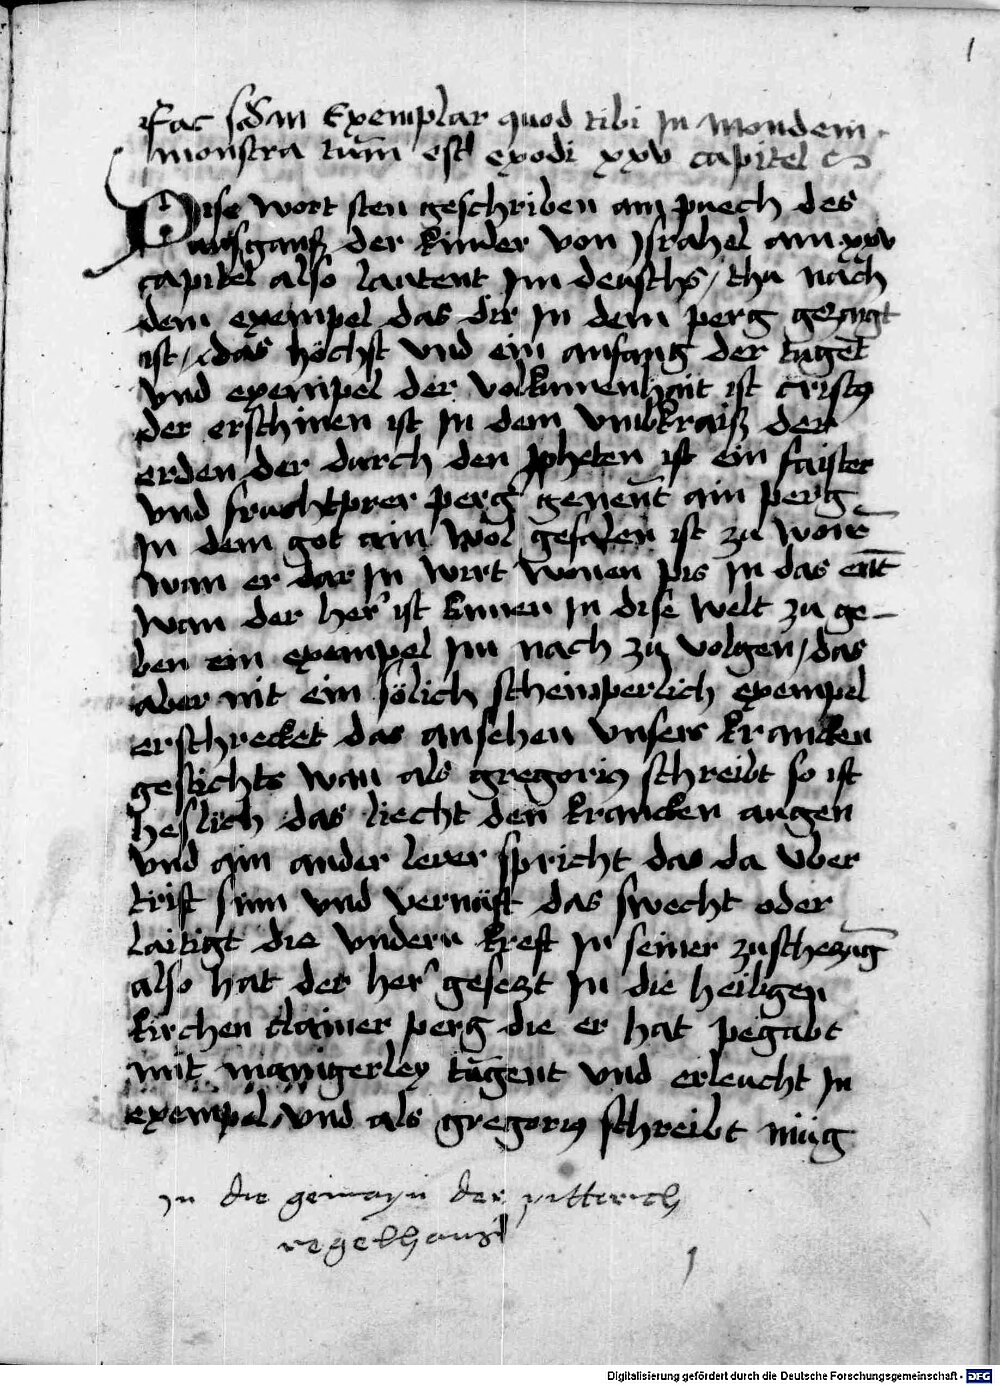 1
Fac scdm Exemplar quod tibi In Mondem
monstra tum est exodi xxv capitel
Dise wort sten geschriben am puech des
ausganß der kinder von Jsrahel am xxv
capitel also lautent Im deusths / thu nach
dem exempel das dir In dem perg gezaigt
ist / das höchst vnd ein anfang der tugēt
vnd exempel der volkumenhait ist cristꝰ
der erschinen ist In dem vmbkraiß der
erden der durch den ꝓpheten ist ein faister
vnd fruchtprer perg genent ain perg
In dem got ain wol gefalen ist zu wonē
wan er dar In wirt wonen pis In das ent
wan der her ist kumen In dise welt zu ge-
ben ein exempel Im nach zu volgen / das
aber nit ein sölich scheimperlich exempel
erschrecket das ansehen vnsers krancken
gesichts wan als gregoriꝰ schreibt so ist
heslich das liecht den krancken augen
vnd ain ander lerer spricht das da vber
trift sinn vnd vernūft das swecht oder
laidigt die vndern kreft In seiner
also hat der her gesezt In die heiligen
kirchen clainer perg die er hat pegabt
mit manigerley tugent vnd erleucht In
exempel / vnd als gregoriꝰ schreibt müg
In die gemayn der pitterich
regelhauß
1
Digitalisierung gefördert durch die Deutsche Forschungsgemeinschaft - DFG